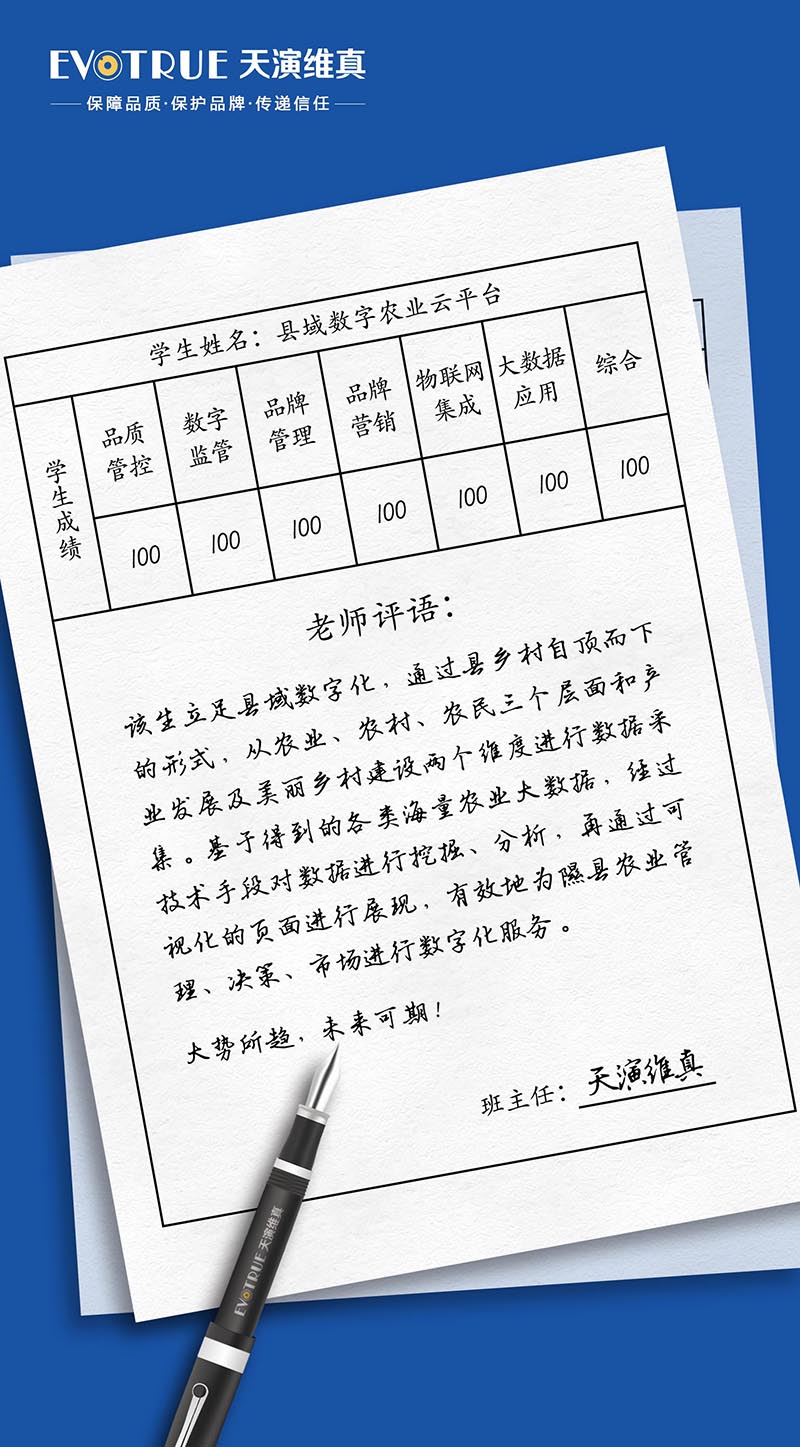 EVOTRUE 天演维真
保障品质·保护品牌·传递信任
学生姓名：县域数字农业云平台
学生成绩
品质管控 数字监管 品牌管理 品牌营销 物联网集成 大数据应用 综合
100 100 100 100 100 100 100
老师评语：
该生立足县域数字化，通过县乡村自顶而下
的形式，从农业、农村、农民三个层面和产
业发展及美丽乡村建设两个维度进行数据采
集。基于得到的各类海量农业大数据，经过
技术手段对数据进行挖掘、分析，再通过可
视化的页面进行展现，有效地为隰县农业管
理、决策、市场进行数字化服务。
大势所趋，未来可期！
班主任：天演维真
EVOTRUE 天演维真